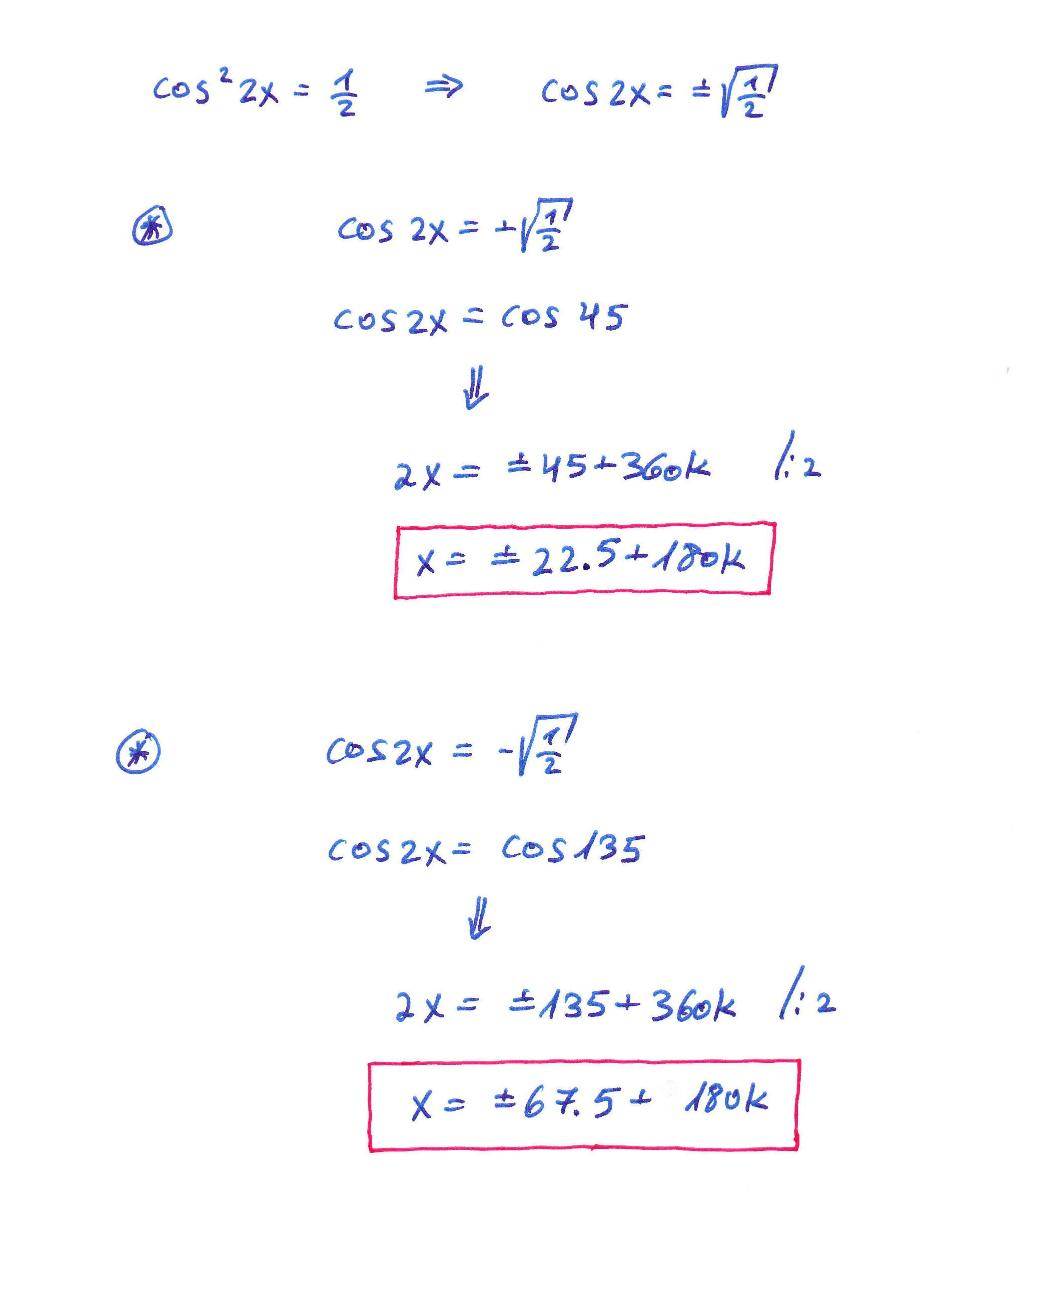 cos² 2x = 1/2 ⇒ cos 2x = ±√(1/2)
⊛ cos 2x = +√(1/2)
cos 2x = cos 45
⇓
2x = ±45+360k /:2
x = ±22.5+180k
⊛ cos 2x = -√(1/2)
cos 2x = cos 135
⇓
2x = ±135+360k /:2
x = ±67.5+180k